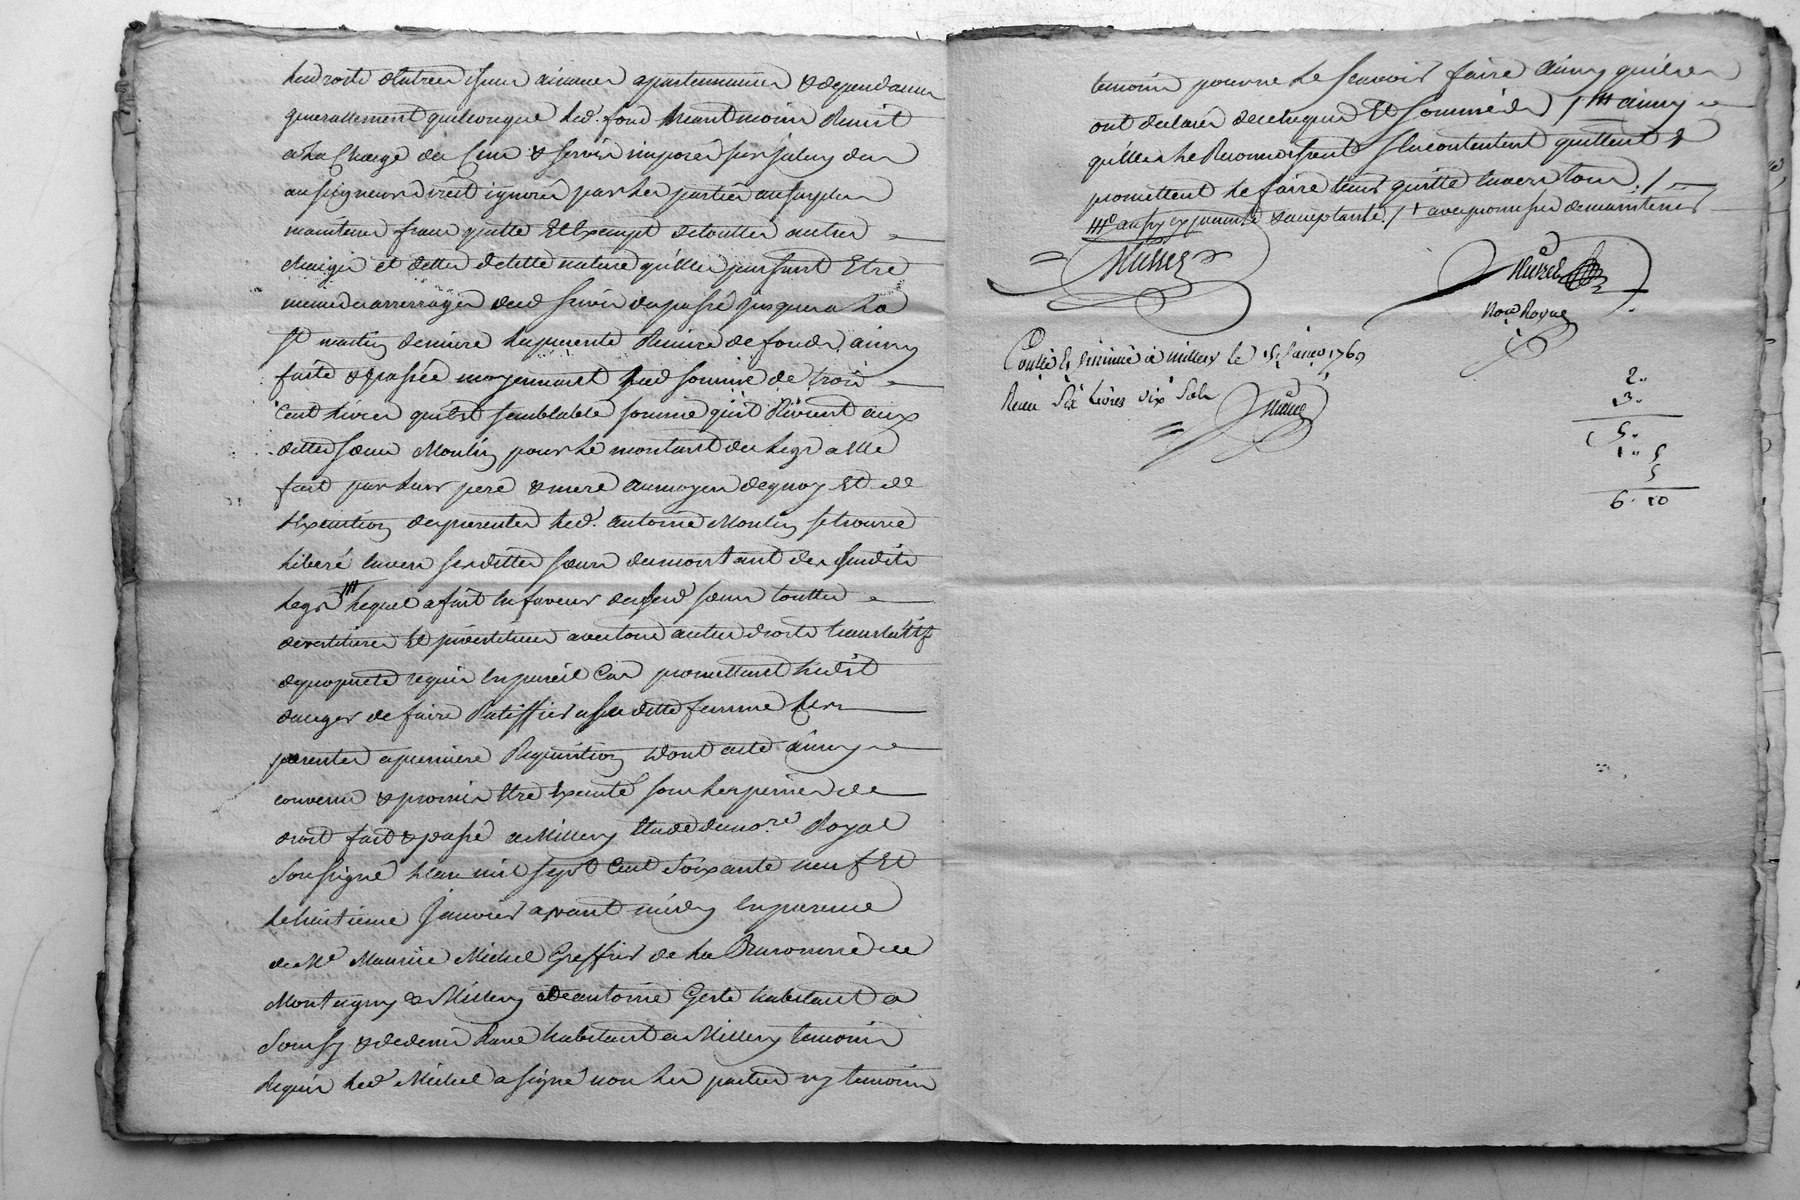 ses droits d'entrées issues aisances apartenances & dependances
generallement quelconque led. fond neantmoins Remit
a la Charge du Cens & servis imposés sur jceluy du
au seigneur direct ignorés par les parties au surplus
maintenu franc quitte Et Exempt de touttes autres
charges et dettes de telle nature qu'elles puissent Etre
meme d'arrerrages desd servis du passé jusques a La
st martin derniere la presente Remise de fonds ainsy
faite & passée moyennant lad somme de trois
cent livres qu'est semblable somme qui Revient aux
dittes sœurs Moulin pour le montant du legs a elle
fait par leurs pere & mere au moyen de quoy Et de
l'Execution des presentes led. antoine Moulin se trouve
liberé envers sesdittes sœurs du montant des susdits
legs lequel a fait en faveur desesd sœurs touttes
devestitures Et jnvestitures avec tous autres droits translatifs
de proprieté requis En pareil Cas promettant ledit
de faire Ratiffier a sa ditte femme les
presentes a premiere Requisition dont acte ainsy
convenu & promis Etre Executé sous les peines de
droit fait & passé a Millery Etude du no.re Royal
Soussigné l'an mil sept Cent Soixante neuf Et
le huitieme Janvier avant midy En presence
de Me Maurice Michel Greffier de la Baronnie de
Montagny & Millery de antoine Geste habitant a
Soucy & de denis habitant a Millery temoins
Requis led Michel a signé non les parties ny temoin
temoins pour ne le scavoir faire ainsy qu'ils
ont declarés de ce Enquis Et sommés ainsy
qu'elles le Reconnoissent s'en contentent quittent &
promettent le faire tenir quitte Envers tous
aussy & acceptante / avec promesse de maintenir
Michel
Not.re Royal
Contlé & insinué à millery le 15 Janvr 1769
Reçu Six livres dix Sols
2..
3..
5..
1.. 5
5
6. 10